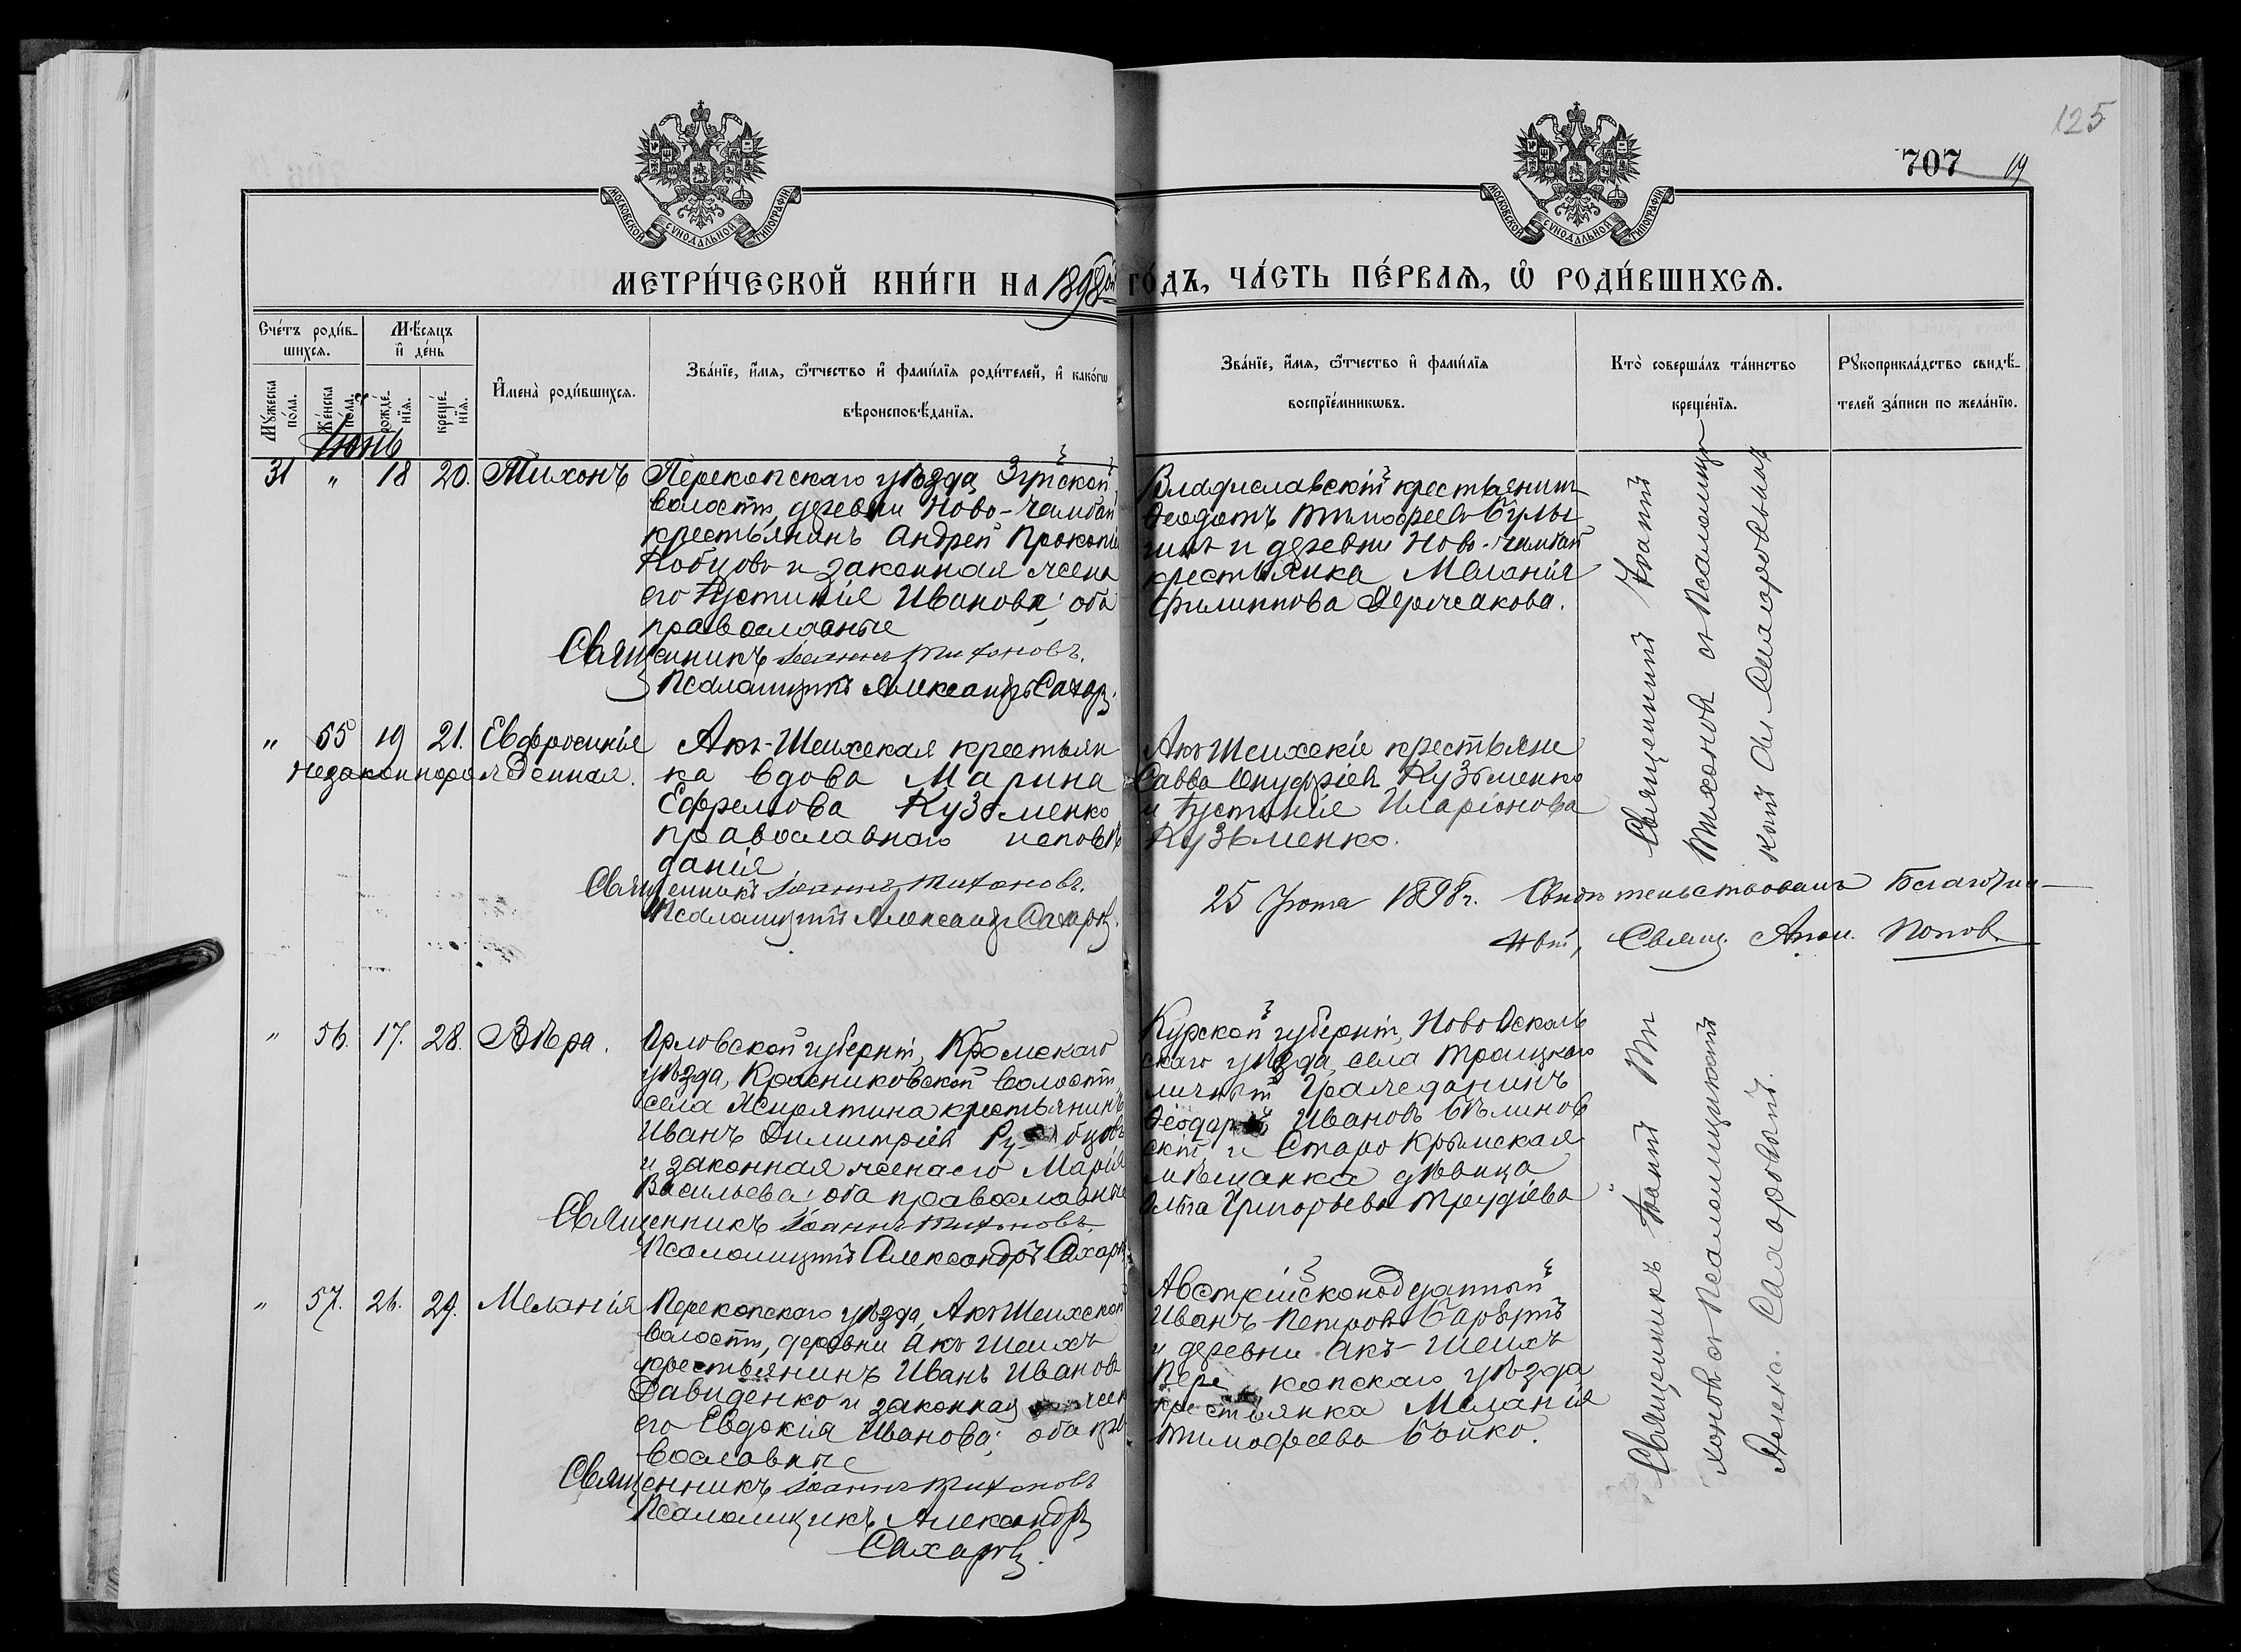 125
707 19
МОСКОВСКОЙ СУНОДАЛЬНОЙ ТИПОГРАФІИ
МОСКОВСКОЙ СУНОДАЛЬНОЙ ТИПОГРАФІИ
МЕТРИ́ЧЕСКОЙ КНИ́ГИ НА 1898ой ГО́ДЪ, ЧА́СТЬ ПЕ́РВАѦ, Ѽ РОДИ́ВШИХСѦ.
Сче́тъ роди́вшихсѧ.
Мѣ́сѧцъ и҆ де́нь
Мꙋ́жеска по́ла.
Же́нска по́ла.
рожде́нїѧ.
креще́нїѧ.
И҆мена̀ роди́вшихсѧ.
Зва́нїе, и҆́мѧ, ѻ҆́тчество и҆ фами́лїѧ роди́телей, и҆ како́гѡ вѣроисповѣ́данїѧ.
Зва́нїе, и҆́мѧ, ѻ҆́тчество и҆ фами́лїѧ воспрїе́мникѡвъ.
Кто̀ соверша́лъ та́инство креще́нїѧ.
Рꙋкоприкла́дство свидѣ́телей за́писи по жела́нїю.
Іюнь
31 " 18 20. Тихонъ
Перекопскаго уѣзда, Зуйской
волости, деревни Ново-Чамбай
крестьянинъ Андрей Прокопіевъ
Кобцовъ и законная жена
его Іустинія Иванова; оба
православные
Священникъ Іоаннъ Тихоновъ.
Псаломщикъ Александръ Сахаровъ.
Владиславскій крестьянинъ
Ѳеодотъ Тимоѳеевъ Булы
гинъ и деревни Ново-Чамбай
крестьянка Меланія
Филиппова Держакова.
Священникъ Іоаннъ
Тихоновъ съ Псаломщи
комъ Ал. Сахаровымъ
" 55 19 21. Евфросинія
незаконнорожденная.
Акъ-Шеихская крестьян
ка вдова Марина
Ефремова Кузьменко
православнаго исповѣ
данія
Священникъ Іоаннъ Тихоновъ.
Псаломщикъ Александръ Сахаровъ.
Акъ-Шеихскіе крестьяне
Савва Онуфріевъ Кузьменко
и Іустинія Иларіонова
Кузьменко.
25 1898 г. Свидѣтельствовалъ Благочин
ный, Свящ. Попов
" 56. 17. 28. Вѣра.
Орловской губерніи, Кромскаго
уѣзда, Красниковской волости,
села Жирятина крестьянинъ
Иванъ Димитріевъ
и законная жена его Марія
Васильева; оба православные
Священникъ Іоаннъ Тихоновъ
Псаломщикъ Александръ Сахаровъ
Курской губерніи, Ново Осколь
скаго уѣзда, села Троицкаго
личный Гражданинъ
Ѳеодоръ Ивановъ Бѣлинов
скій и Старо Крымская
мѣщанка дѣвица
Ольга Григорьева
Священникъ Іоаннъ Ти
хоновъ съ Псаломщикомъ
Алекс. Сахаровымъ.
" 57. 26. 29. Меланія
Перекопскаго уѣзда, Акъ Шеихской
волости, деревни Акъ Шеихъ
крестьянинъ Иванъ Ивановъ
Давиденко и законная жена
его Евдокія Иванова; оба пра
вославные
Священникъ Іоаннъ Тихоновъ
Псаломщикъ Александръ
Сахаровъ.
Австрійскоподданный
Иванъ Петровъ
и деревни Акъ-Шеихъ
Перекопскаго уѣзда
крестьянка Меланія
Тимоѳеева Бойко.